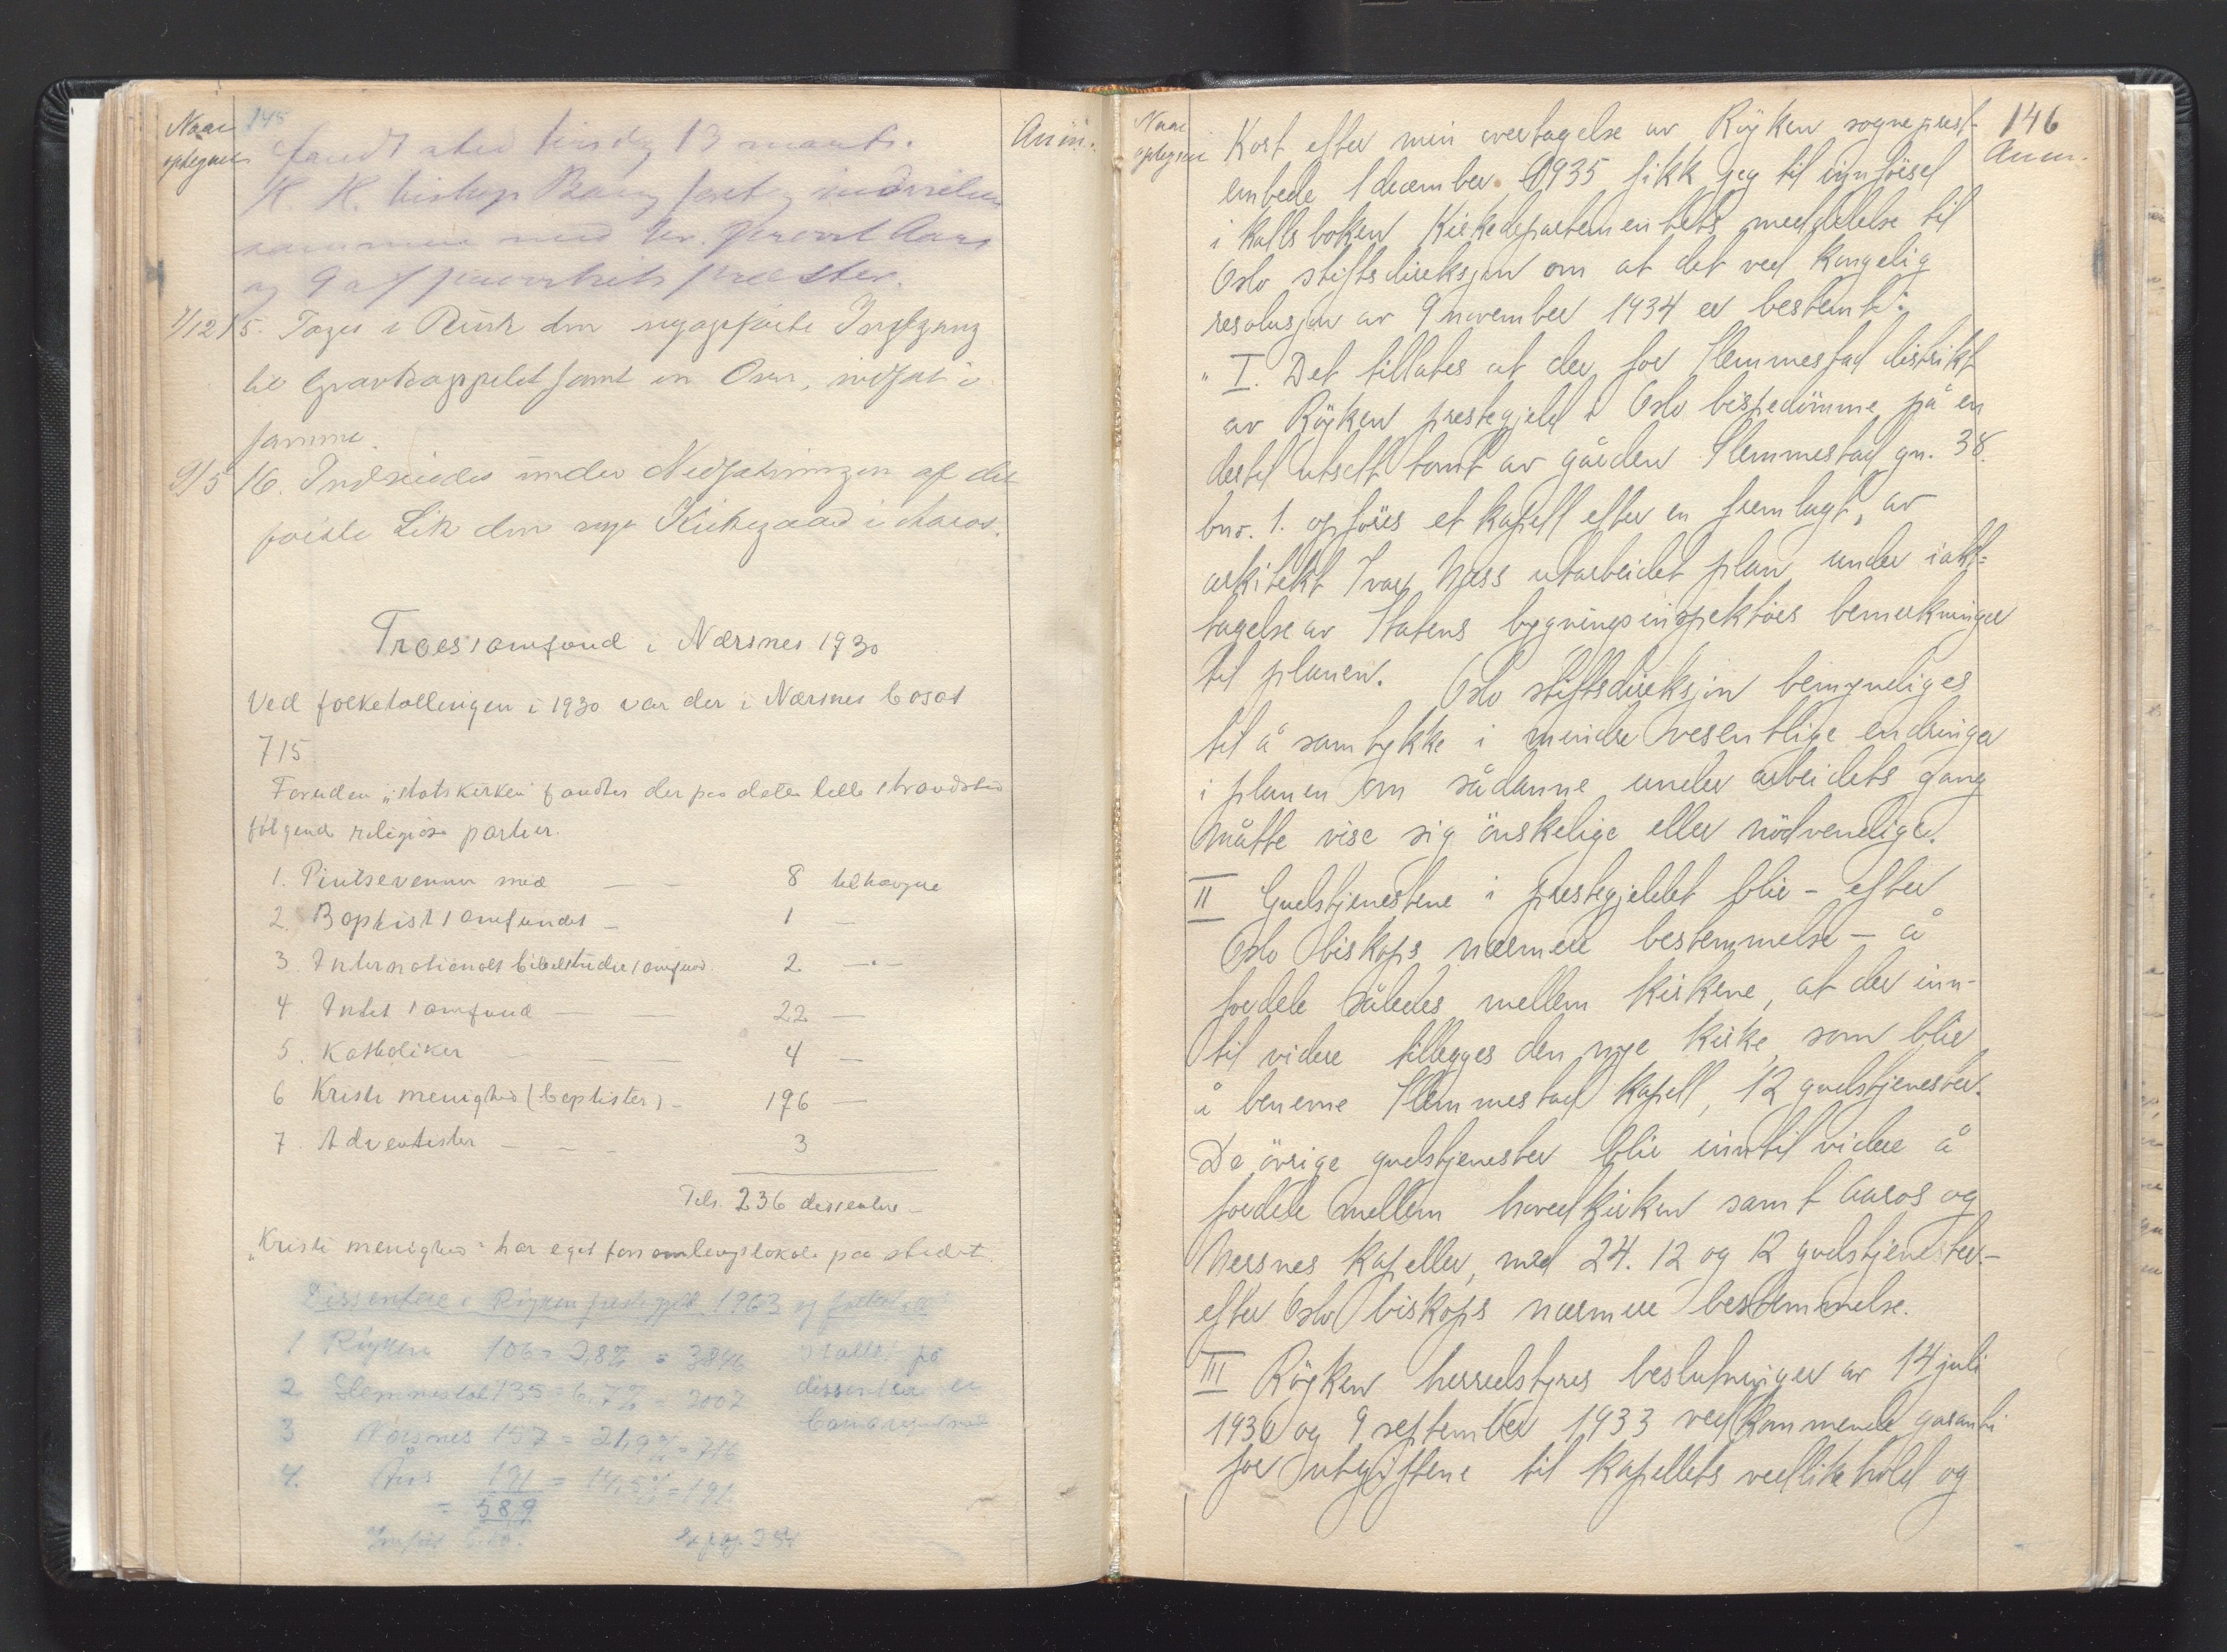 Naar
optegnet
145
Anm.
fandt sted tirsdag 13 marts.
H. H. biskop Bang foretog indvielsen
sammen med hr. provst Aars
og 9 af provstiets præster.
7/12 15. Toges i Brug den nyopførte Indgang
til Gravkappelet samt en Ovn, indsat i
samme.
9/5 16. Indviedes under Nedsætningen af det
første Lik den nye Kirkegaard i Aaros.
Troessamfund i Nærsnes 1930
Ved folketællingen i 1930 var der i Nærsnes bosat
715
Foruden "statskirken" fandtes der paa dette lille strandsted
følgende religiøse partier.
1. Pintsevenner med — — 8 tilhængere
2. Baptistsamfundet — 1 —
3. Internationalt bibelstudiesamfund 2 —"—
4 Intet samfund — — 22 —
5. Katholiker — — — 4 —
6 Kristi menighed (baptister) — 196 —
7. Adventister — — 3
Tils. 236 dissentere —
"Kristi menighed" har eget forsamlingslokale paa stedet.
Dissentere i Røyken prestegjeld 1963 og folketall
1 Røyken 106 = 2,8% = 3846
2 Slemmestad 135 = 6,7% = 2007
3 Nærsnes 157 = 21,9% = 716
4. Åros 191 = 14,5% = 191
= 589
I tallet på
dissentere er
barna regnet med
Naar
optegnet
146
Anm.
Kort efter min overtagelse av Röyken sogneprest-
embede 1 december 1935 fikk jeg til innførsel
i kallsboken Kirkedepartementets meddelelse til
Oslo stiftsdireksjon om at det ved kongelig
resolusjon av 9 november 1934 er bestemt:
" I. Det tillates at der for Slemmestad distrikt
av Röyken prestegjeld i Oslo bispedömme på en
dertil utsett tomt av gården Slemmestad gn. 38.
bnr. 1. opföres et kapell efter en fremlagt, av
arkitekt Ivar Næss utarbeidet plan under iakt-
tagelse av Statens bygningsinspektörs bemerkninger
til planen. Oslo stiftsdireksjon bemyndiges
til å samtykke i mindre vesentlige endringer
i planen om sådanne under arbeidets gang
måtte vise sig önskelige eller nödvendige.
II Gudstjenestene i prestegjeldet blir - efter
Oslo biskops nærmere bestemmelse - å
fordele således mellem kirkene, at der inn-
til videre tillegges den nye kirke, som blir
å benevne Slemmestad kapell, 12 gudstjenester.
De övrige gudstjenester blir inntil videre å
fordele mellem hovedkirken samt Aaros og
Nersnes kapeller, med 24. 12 og 12 gudstjenester -
efter Oslo biskops nærmere bestemmelse.
III Röyken herredstyres beslutninger av 14 juli
1930 og 9 september 1933 vedkommende garanti
for utgiftene til kapellets vedlikehold og